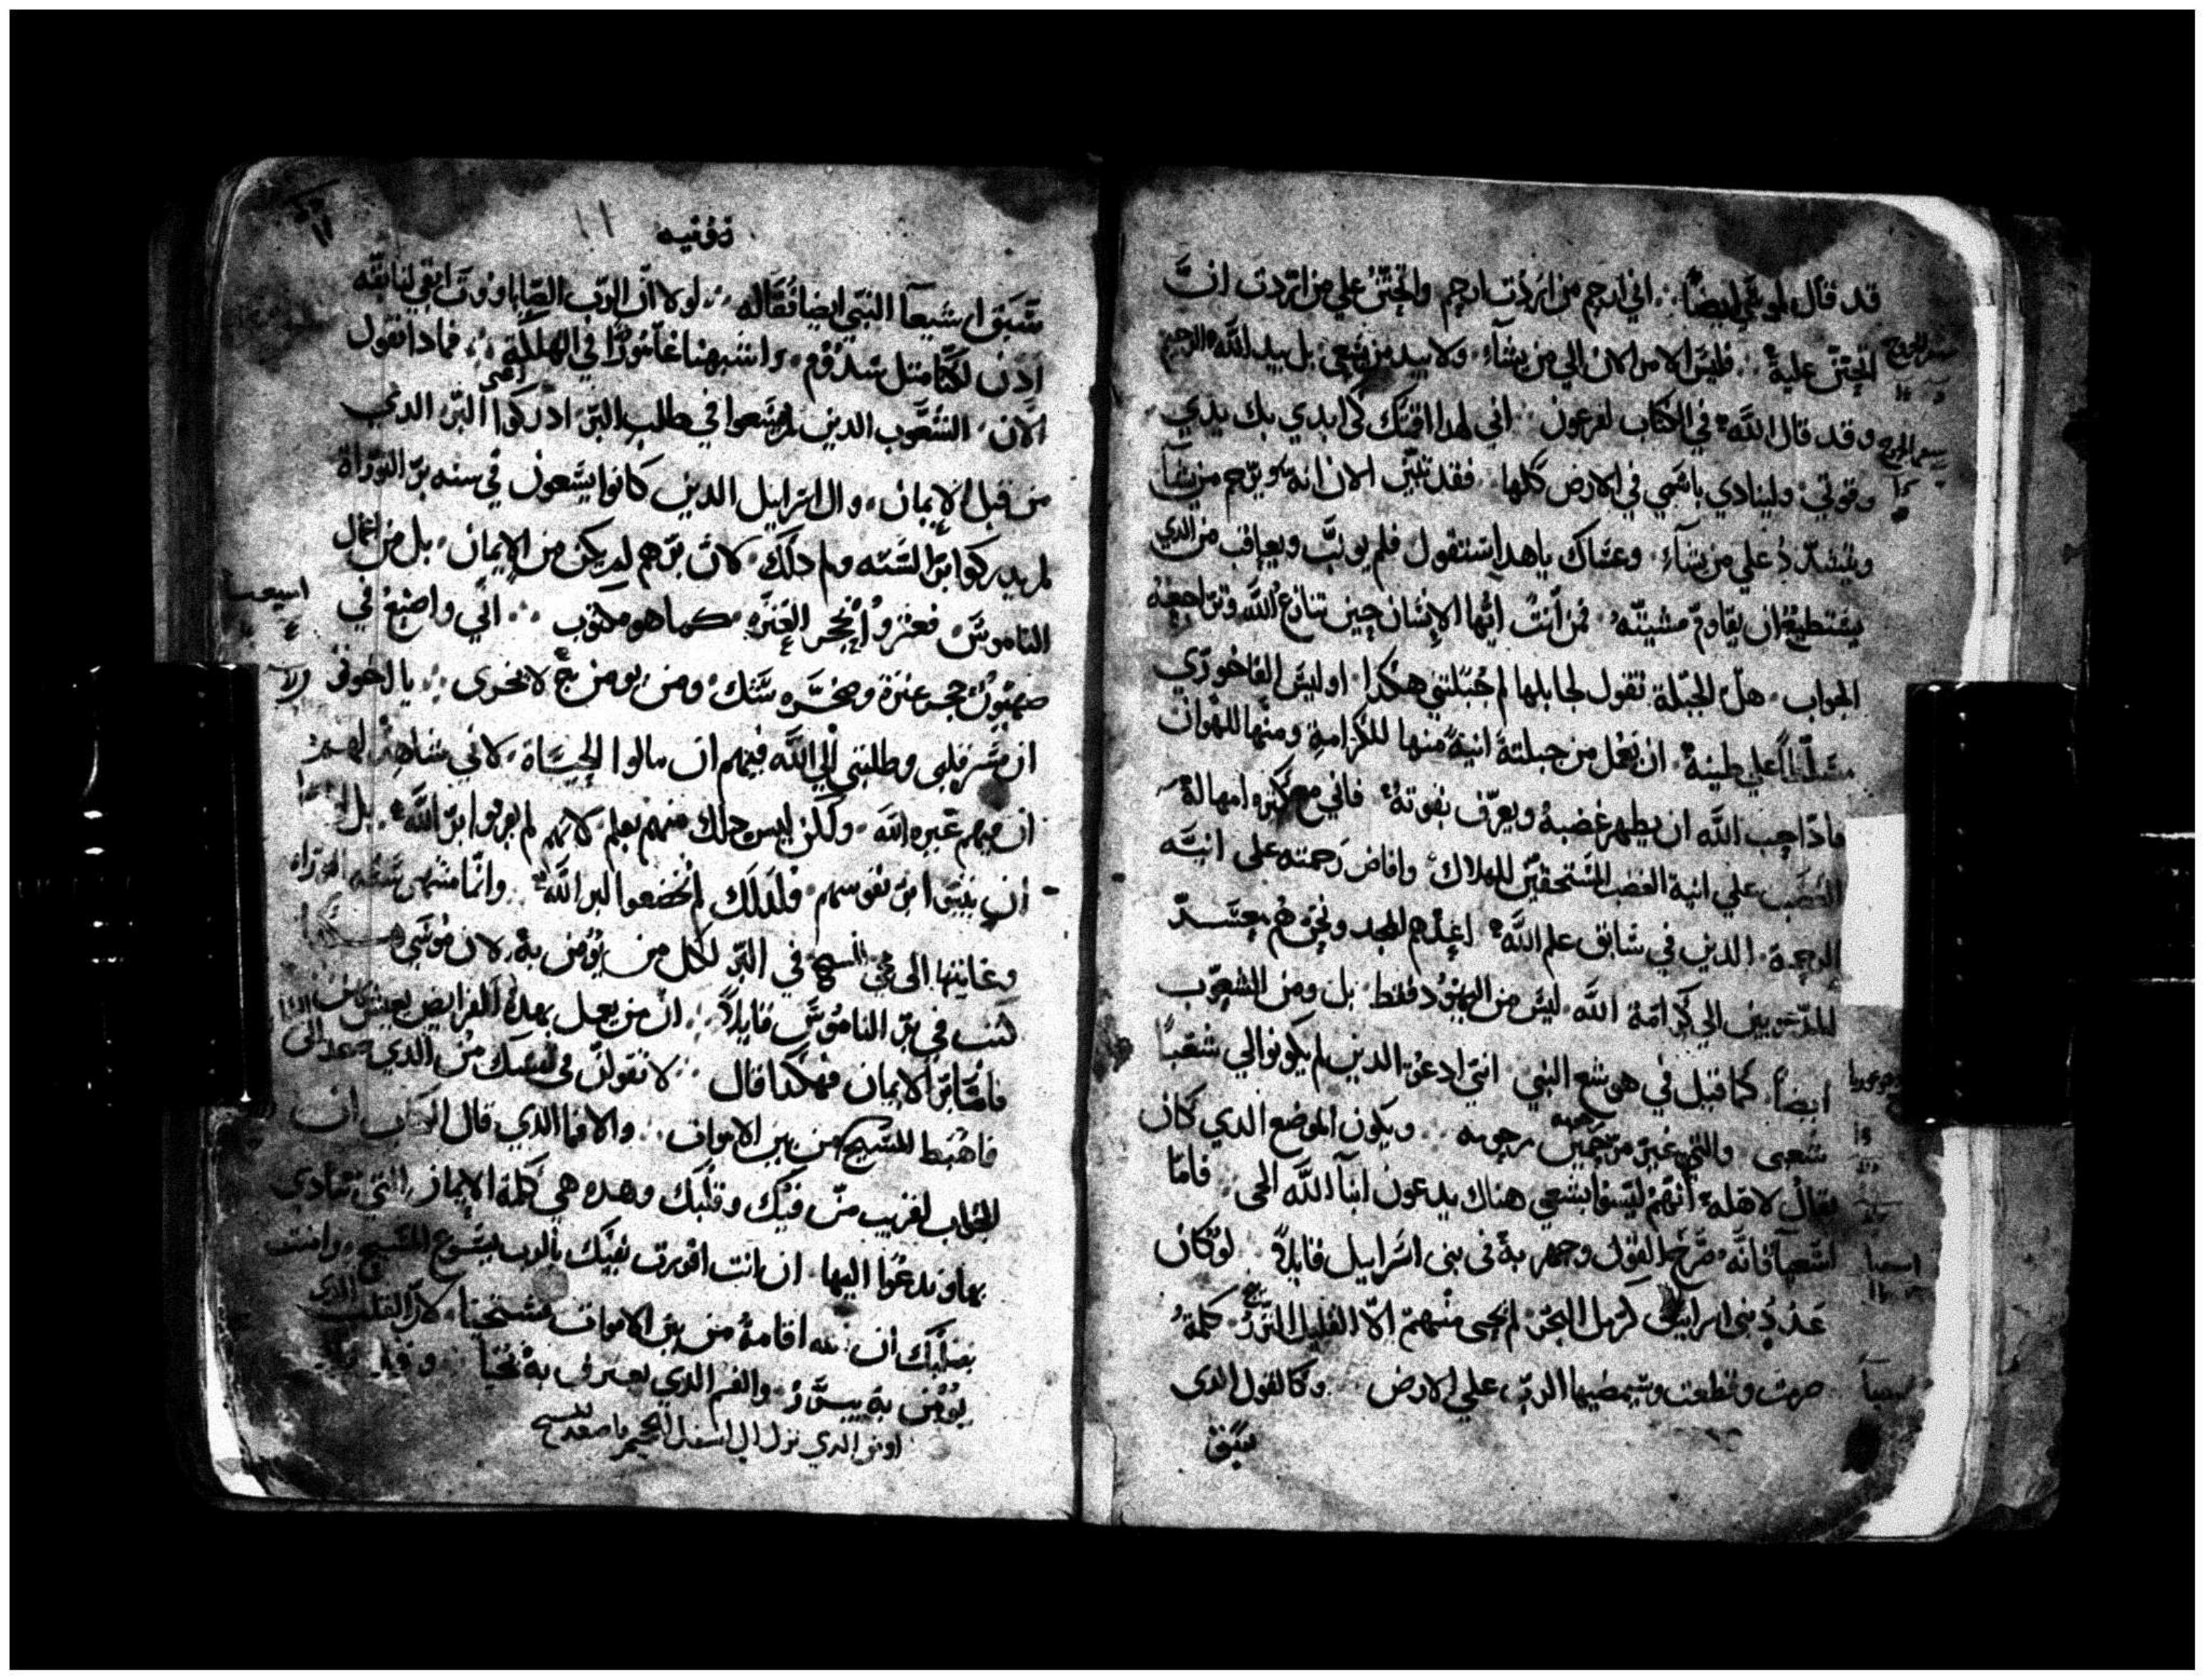 قد قال لموسي ايضاً اني ارحم من اردت ارحم واتحنن علي من اردت ان
اتحنن عليه فليس الامر الان الي من يشآء ولا بيد من يسعي بل بيد الله الرحيم
وقد قال الله في الكتاب لفرعون اني لهدا اقمتك كي ابدي بك يدي
وقوتي ولينادي باسمي في الارض كلها فقد تبين الان انه يرحم من يشآ
ويشدد علي من يشآء وعساك ياهدا ستقول فلم يونب ويعاقب من الدي
يستطيع ان يقاوم مشيته فمن انت ايها الانسان حين تنازع الله وتراجعه
الجواب هل الجبلة تقول لجابلها لم جبلتني هكدا اوليس الفاخوري
مسلطاً علي طينه ان يعمل من جبلته انية منها للكرامة ومنها للهوان
مادا احب الله ان يظهر غضبه ويعرف بقوته فاني مع كثره امهاله
الغضب علي انية الغضب المستحقين للهلاك وافاض رحمته علي انيه
الرحمة الدين في سابق علم الله اعدهم للمجد ونحن هم معتسد
المدعوين الي كرامة الله ليس من اليهود فقط بل ومن الشعوب
ايضاً كما قيل في هوشع النبي انني ادعو الدين لم يكونوا لي شعباً
شعبي والتي غير مرحومه ويكون الموضع الدي كان
يقال لاهله انهم ليسوا بشعبي هناك يدعون ابنآء الله الحي فاما
اشعيا فانه صرخ القول وجهر به في بني اسراييل قايلاً لو كان
عدد بني اسراييل كرمل البحر لم ينجي منهم الا القليل النزر كلمة
صرمت وقطعت وسيمضيها الرب علي الارض وكالقول الدي
سبق
روميه
١١
سبق اشعيآ النبي ايضا فقاله لولا ان الرب الصاباووت ابقي لنا بقيه
ادن لكنا مثل سدوم واشبهنا غامورا في الهلكة فمادا نقول
الان الشعوب الدين لم يسعوا في طلب البر ادركوا البر الدي
من قبل الايمان وال اسراييل الدين كانوا يسعون في سنه بر التوراة
لم يدركوا بر السنه ولم دلك لان برهم لم يكن من الايمان بل من اعمال
الناموس فعثروا بحجر العثره كما هو مكتوب اني واضع في
صهيون حجر عثرة وصخره شك ومن يومن به لا يخزي يا اخوتي
ان مسره قلبي وطلبتي الي الله فيهم ان ينالوا الحياة لاني شاهد لهم
ان فيهم غيره الله ولكن ليس دلك منهم بعلم لانهم لم يعرفوا بر الله بل
ان يثبتوا بر نفوسهم فلدلك لم يخضعوا لبر الله وانما منتهي سنه التوراه
وغايتها الي مجي المسيح في البر لكل من يومن به لان موسي هكدا
كتب في بر الناموس قايلاً ان من يعمل بهده الفرايض يعيش
فاما بر الايمان فهكدا قال لا تقولن في نفسك من الدي صعد الي السما
فاهبط المسيح من بين الاموات والا فما الدي قال الكتاب ان
الجواب لقريب من فيك وقلبك وهده هي كلمة الايمان التي تنادي
بها وندعوا اليها ان انت اقررت بفيك بالرب يسوع المسيح وامنت
بقلبك ان الله اقامه من بين الاموات فستحيا لان القلب الدي
يومن به يبرر والفم الدي يعترف به يحيا
او من الدي نزل الي اسفل الجحيم فاصعد المسيح